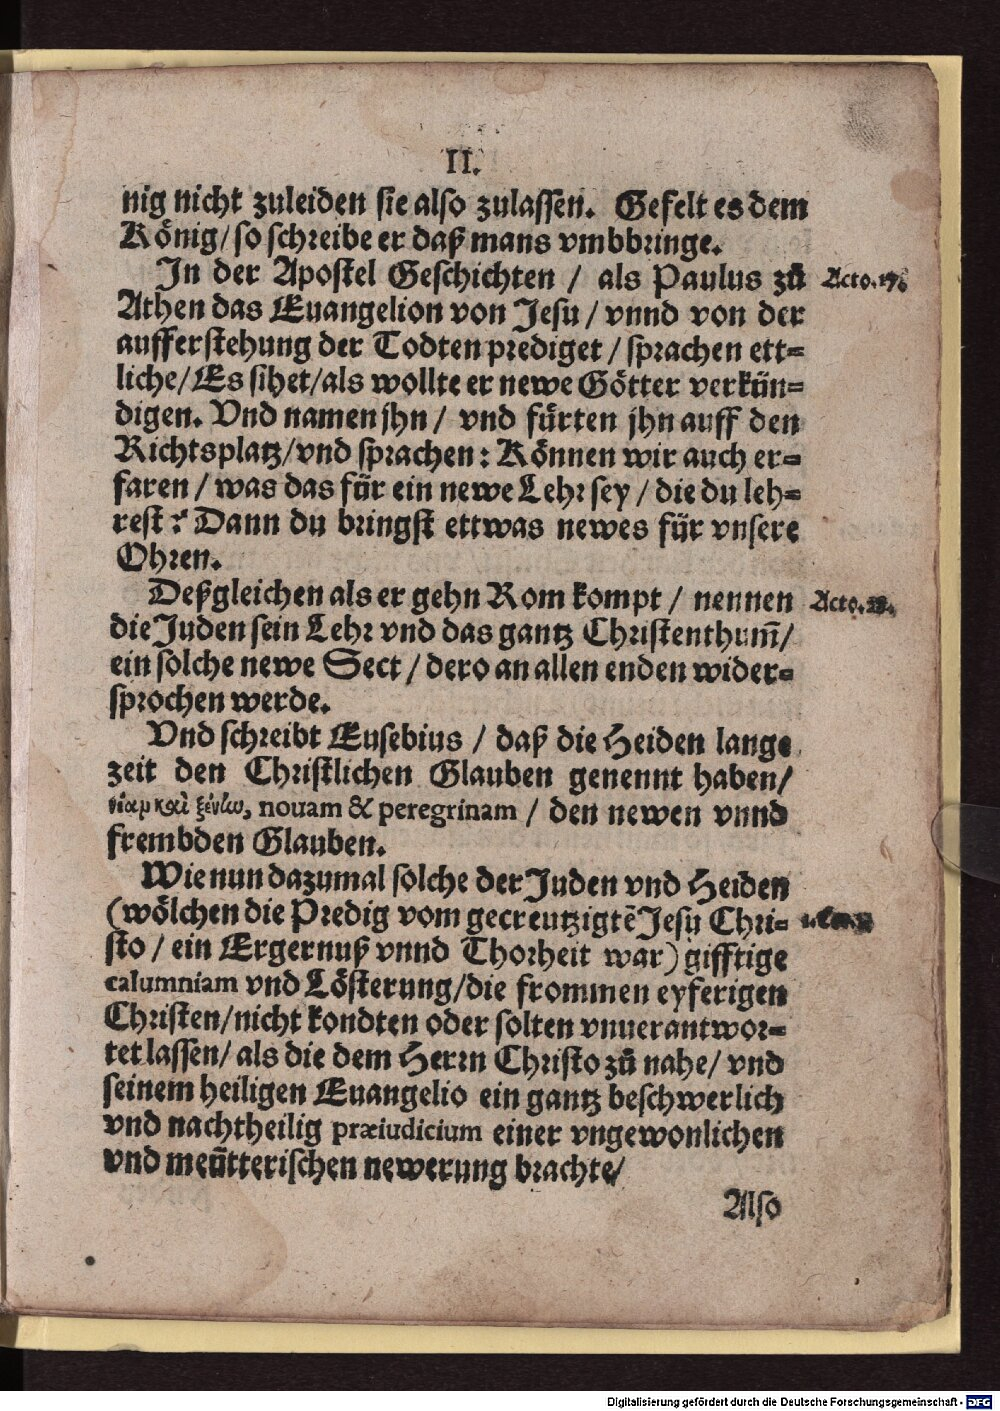 II.
nig nicht zuleiden sie also zulassen. Gefelt es dem
König/ so schreibe er daß mans vmbbringe.
In der Apostel Geschichten / als Paulus zů
Acto. 17.
Athen das Euangelion von Jesu / vnnd von der
aufferstehung der Todten prediget / sprachen ett-
liche/ Es sihet/ als wollte er newe Götter verkün-
digen. Vnd namen jhn / vnd fürten jhn auff den
Richtsplatz/ vnd sprachen: Können wir auch er-
faren / was das für ein newe Lehr sey / die du leh-
rest? Dann du bringst ettwas newes für vnsere
Ohren.
Deßgleichen als er gehn Rom kompt / nennen
Acto. 28.
die Juden sein Lehr vnd das gantz Christenthum̃/
ein solche newe Sect / dero an allen enden wider-
sprochen werde.
Vnd schreibt Eusebius / daß die Heiden lange
zeit den Christlichen Glauben genennt haben/
νέαμ καὶ ξένίω, nouam & peregrinam / den newen vnnd
frembden Glauben.
Wie nun dazumal solche der Juden vnd Heiden
(wölchen die Predig vom gecreutzigtẽ Jesu Chri-
sto / ein Ergernuß vnnd Thorheit war) gifftige
calumniam vnd Lösterung/ die frommen eyferigen
Christen/ nicht kondten oder solten vnuerantwor-
tet lassen/ als die dem Herrn Christo zů nahe/ vnd
seinem heiligen Euangelio ein gantz beschwerlich
vnd nachtheilig præiudicium einer vngewonlichen
vnd meütterischen newerung brachte/
Also
Digitalisierung gefördert durch die Deutsche Forschungsgemeinschaft - DFG